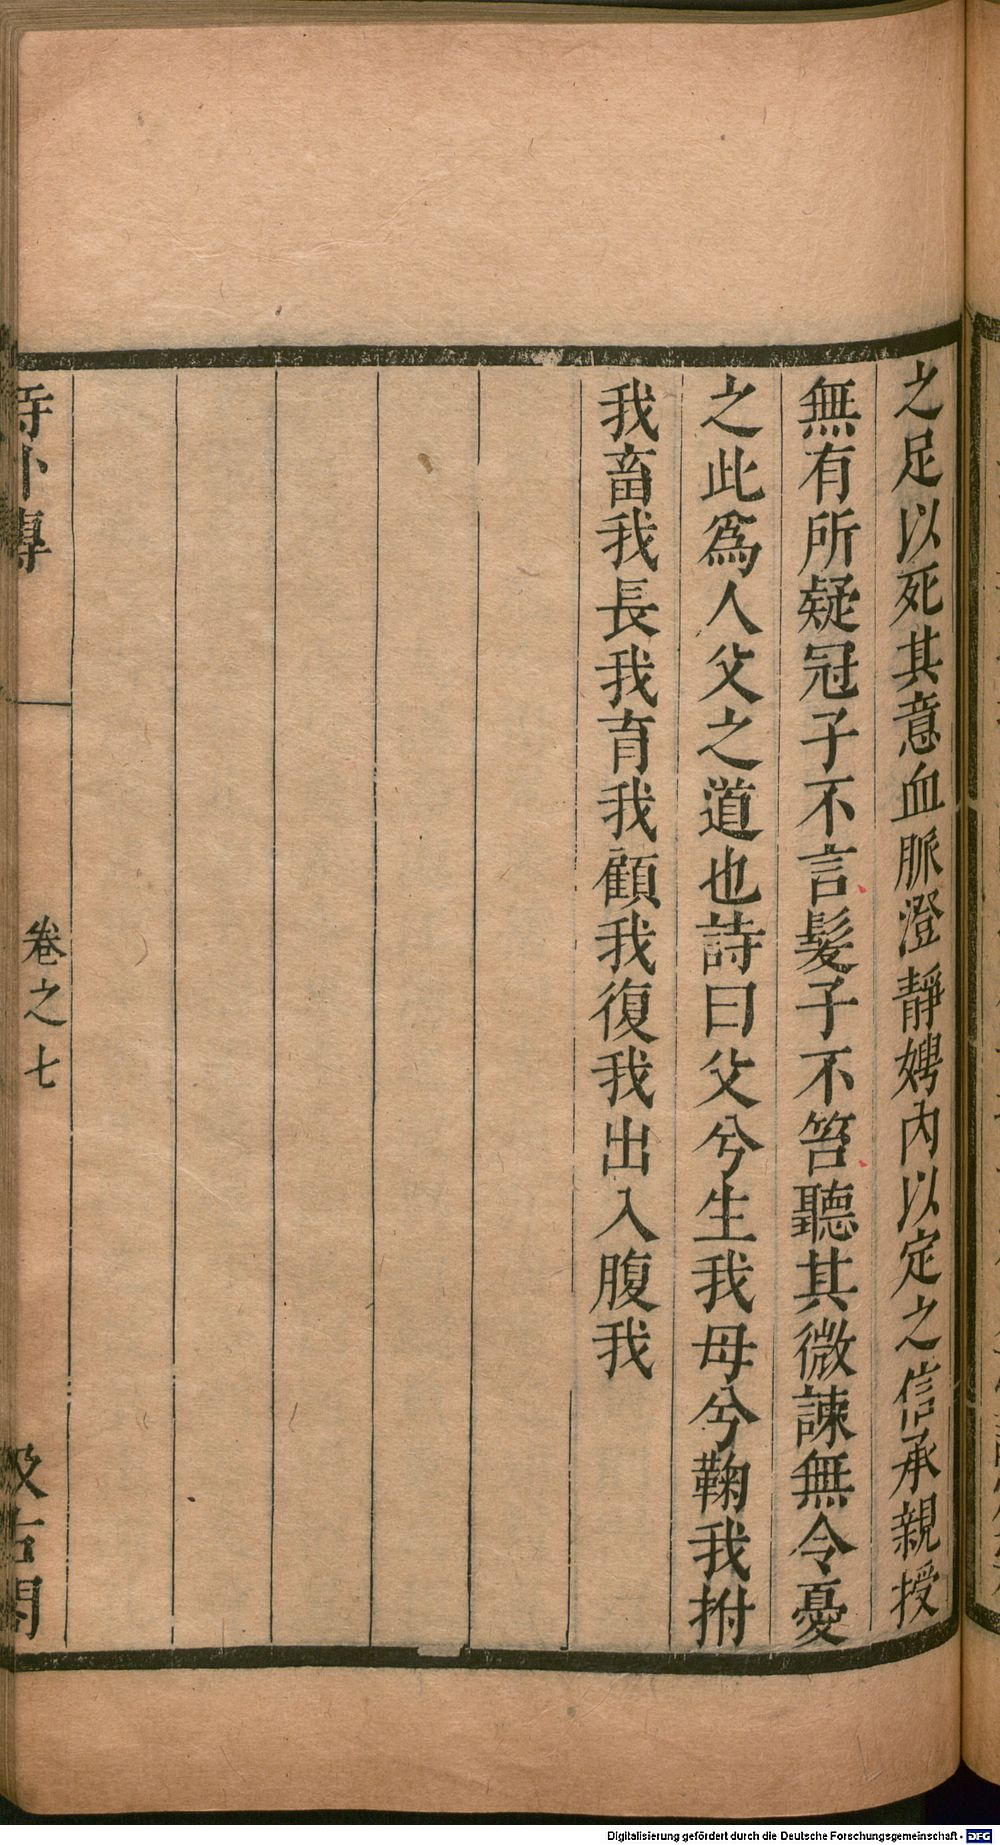 之足以死其意血脈澄靜娉內以定之信承親授
無有所疑冠子不言髮子不笞聽其微諫無令憂
之此爲人父之道也詩曰父兮生我母兮鞠我拊
我畜我長我育我顧我復我出入腹我
詩外傳
卷之七
汲古閣
Digitalisierung gefördert durch die Deutsche Forschungsgemeinschaft - DFG